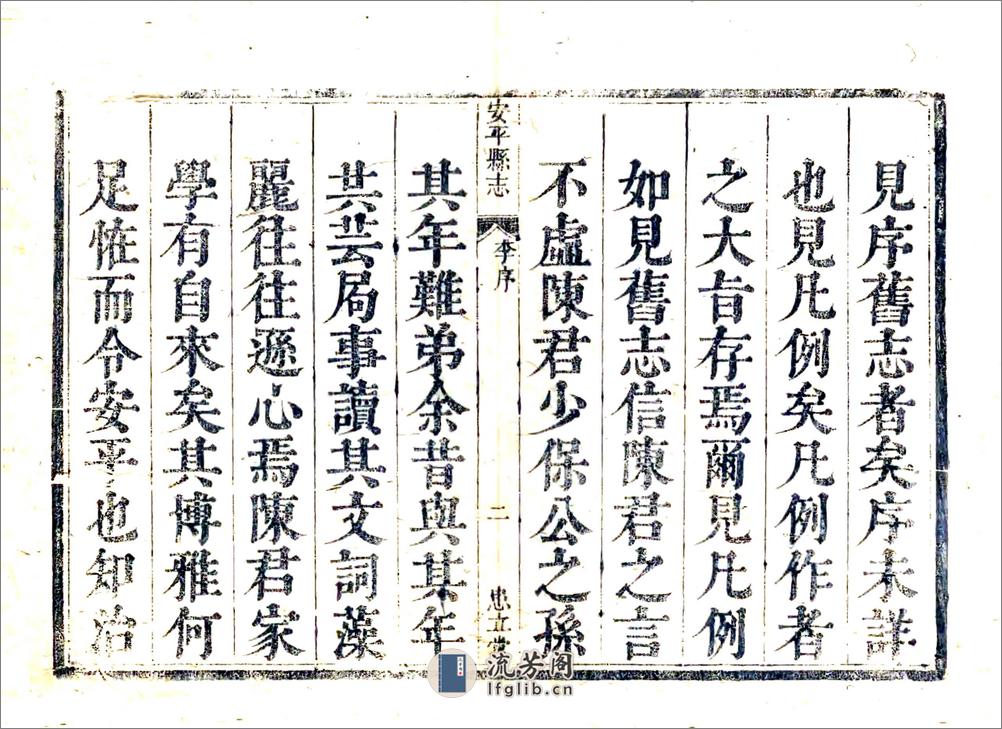 見序舊志者矣序未詳
也見凡例矣凡例作者
之大旨存焉爾見凡例
如見舊志信陳君之言
不虛陳君少保公之孫
安平縣志
李序
二
忠立堂
其年難弟余昔與其年
共芸局事讀其文詞藻
麗往往遜心焉陳君家
學有自來矣其博雅何
足怪而令安平也知治
流芳阁
lfglib.cn